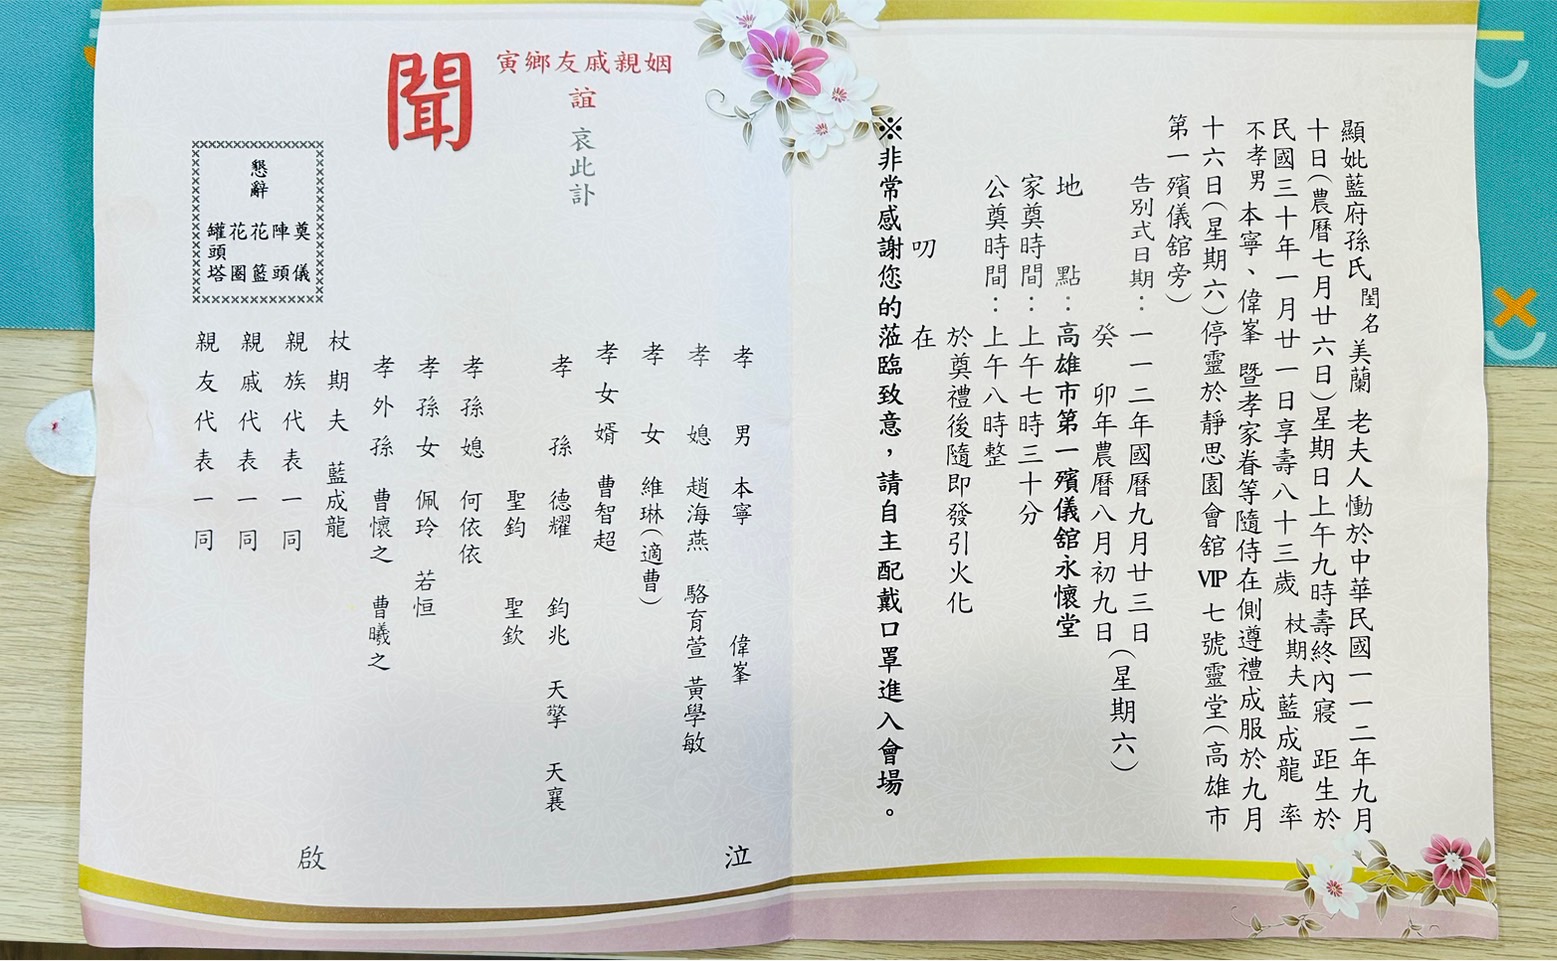 顯妣藍府孫氏閨名美蘭 老夫人慟於中華民國一一二年九月
十日(農曆七月廿六日)星期日上午九時壽終內寢 距生於
民國三十年一月廿一日享壽八十三歲 杖期夫藍成龍 率
不孝男 本寧、偉峯 暨孝家眷等隨侍在側遵禮成服於九月
十六日(星期六)停靈於靜思園會舘VIP七號靈堂(高雄市
第一殯儀舘旁)
告別式日期：一一二年國曆九月廿三日
癸卯年農曆八月初九日(星期六)
地 點：高雄市第一殯儀舘永懷堂
家奠時間：上午七時三十分
公奠時間：上午八時整
於奠禮後隨即發引火化
叨 在
※非常感謝您的蒞臨致意，請自主配戴口罩進入會場。
姻親戚友鄉寅
誼 哀此訃
聞
孝男 本寧 偉峯 泣
孝媳 趙海燕 駱育萱 黃學敏
孝女 維琳(適曹)
孝女婿 曹智超
孝孫 德耀 鈞兆 天擎 天襄
聖鈞 聖欽
孝孫媳 何依依
孝孫女 佩玲 若恒
孝外孫 曹懷之 曹曦之
杖期夫 藍成龍
親族代表一同 啟
親戚代表一同
親友代表一同
懇辭
奠儀
陣頭
花籃
花圈
罐頭塔